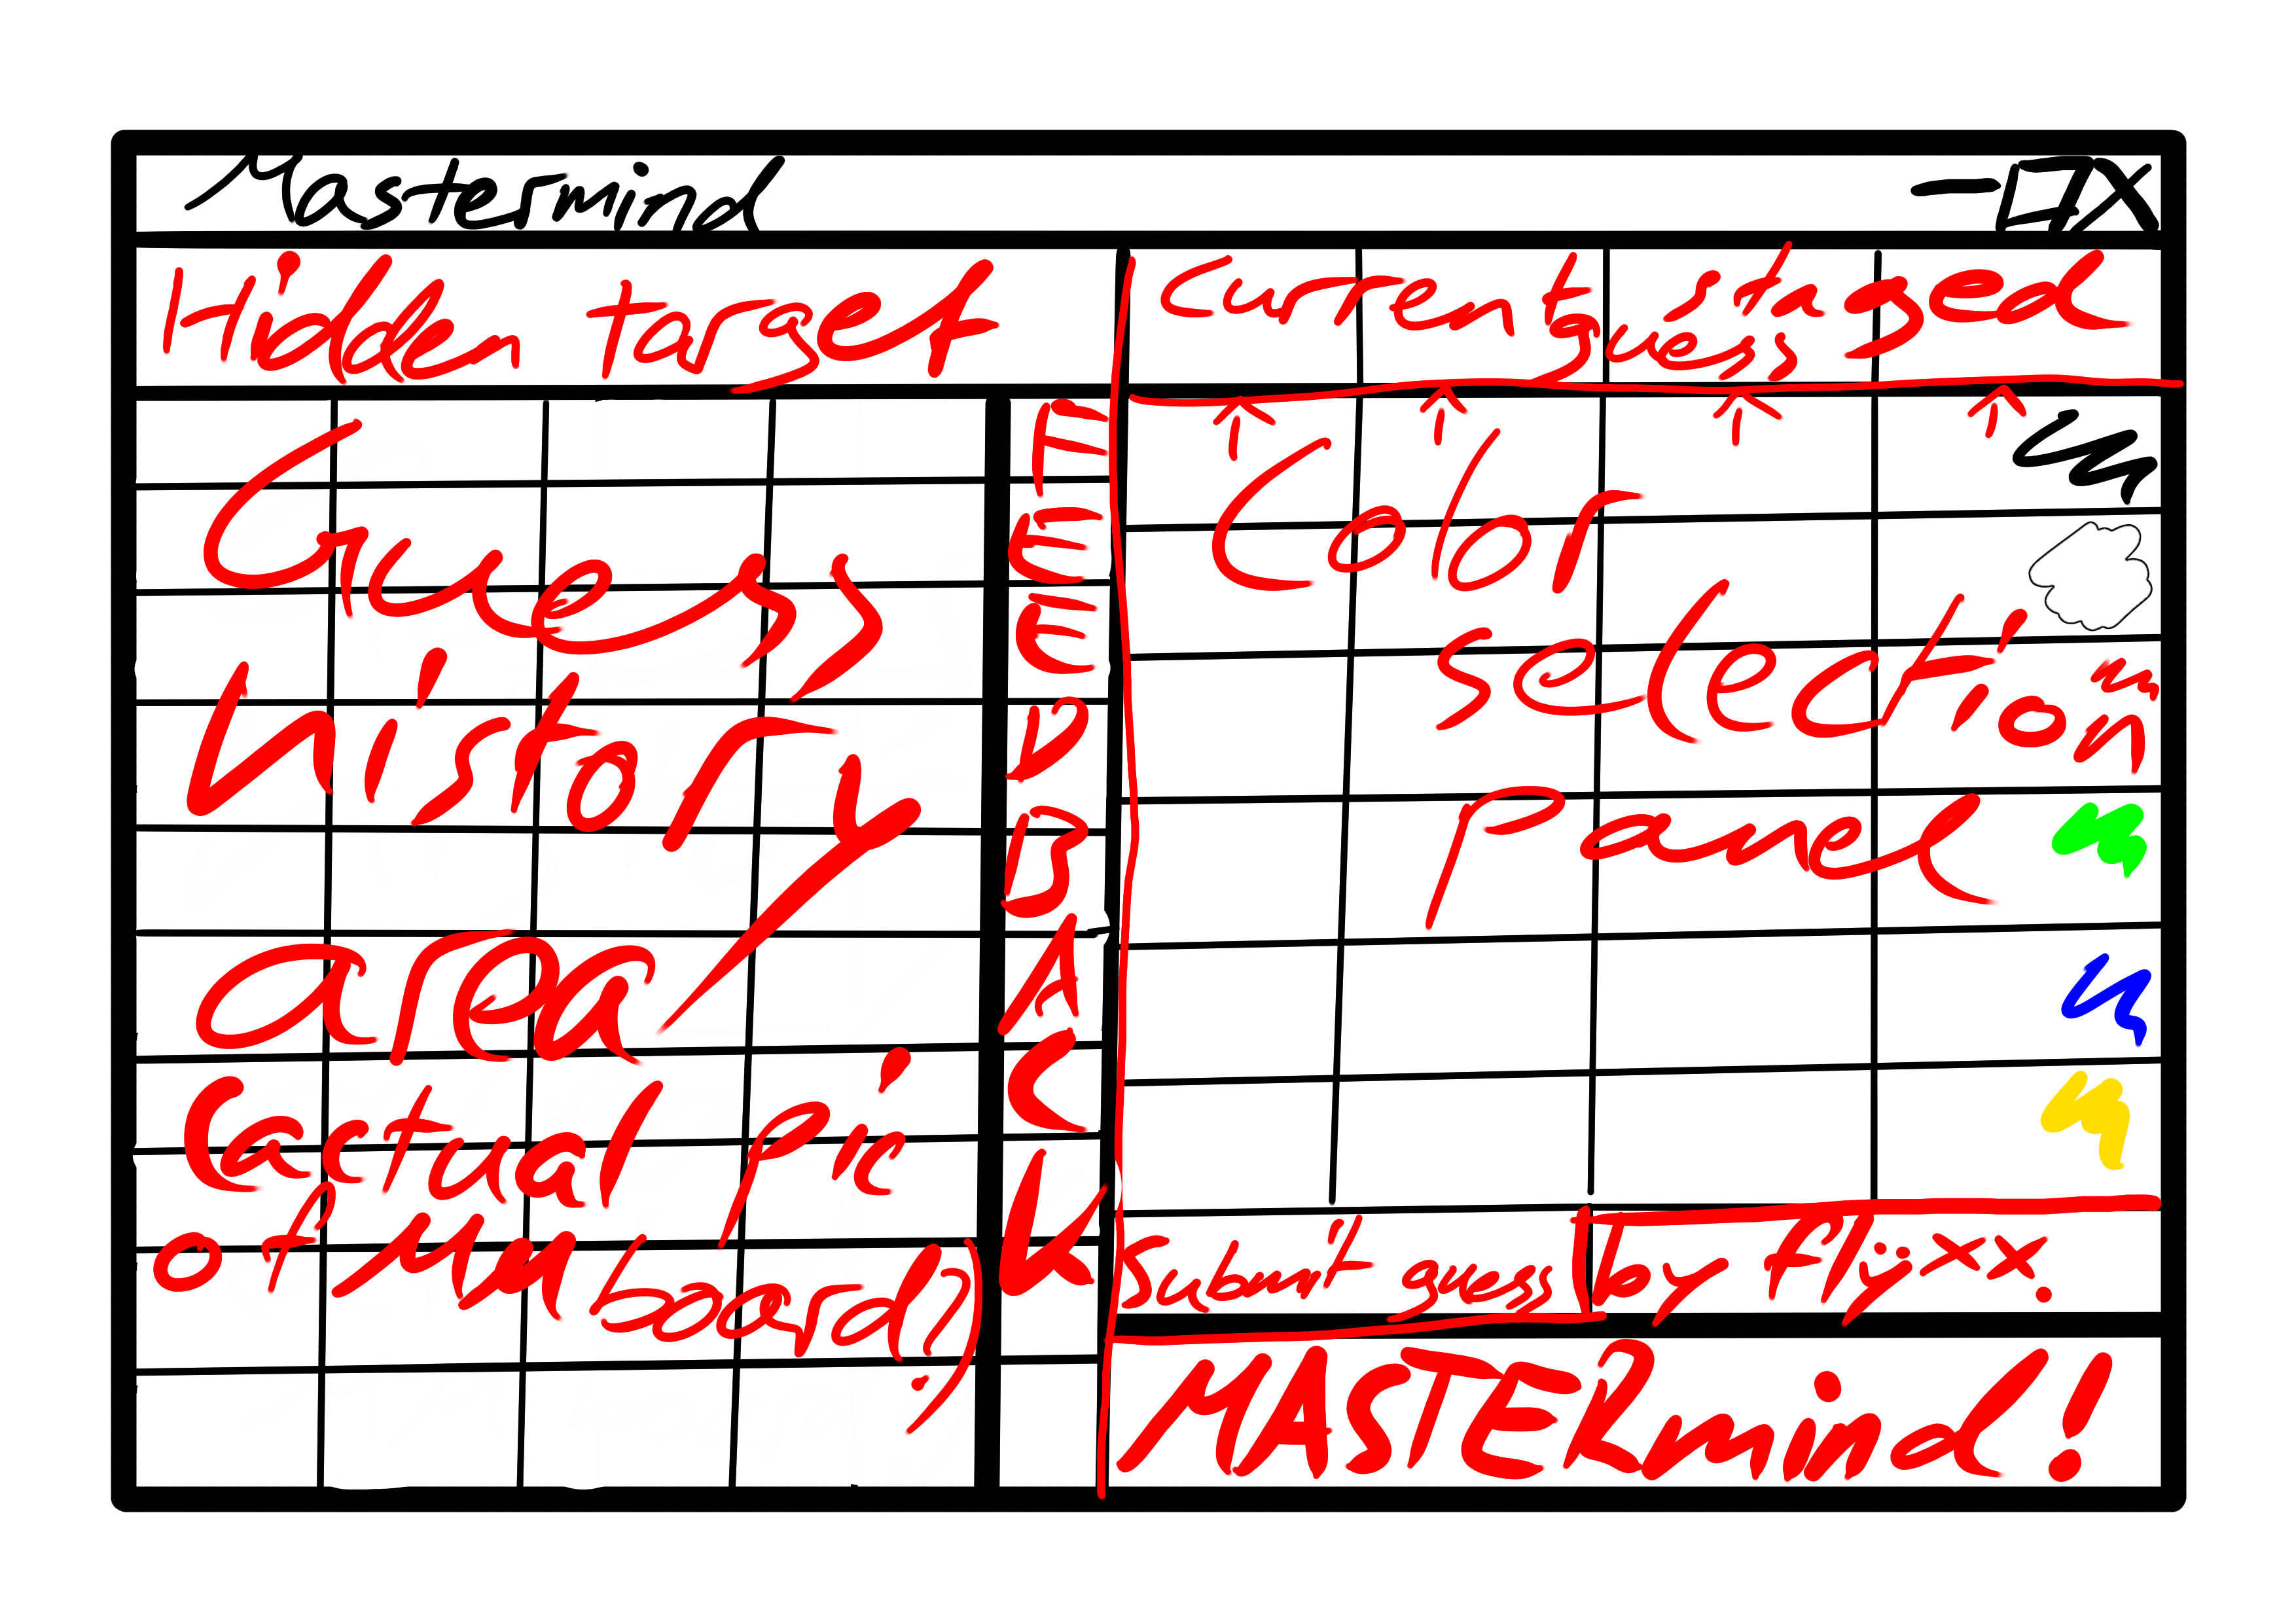 Mastermind
Hidden target
Current staged
guess
Guess
history
area
(actual pic
of MM board?)
FEEDBACK
Color
selection
Panel
Submit guess
MASTERmind!